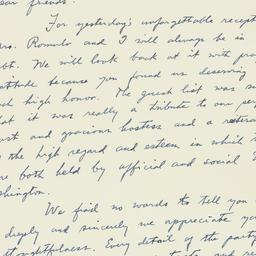 ear friends:
For yesterday's unforgettable recept
rs. Romulo and I will always be in
bt. We will look back at it with pro
atitude because you found us deserving
ch high honor. The guest list was su
at it was really a tribute to our peo
ost and gracious hostess and a
the high regard and esteem in which
re both held by official and social
shington.
We find no words to tell you
deeply and sincerely we appreciate you
thoughtfulness. Every detail of the party